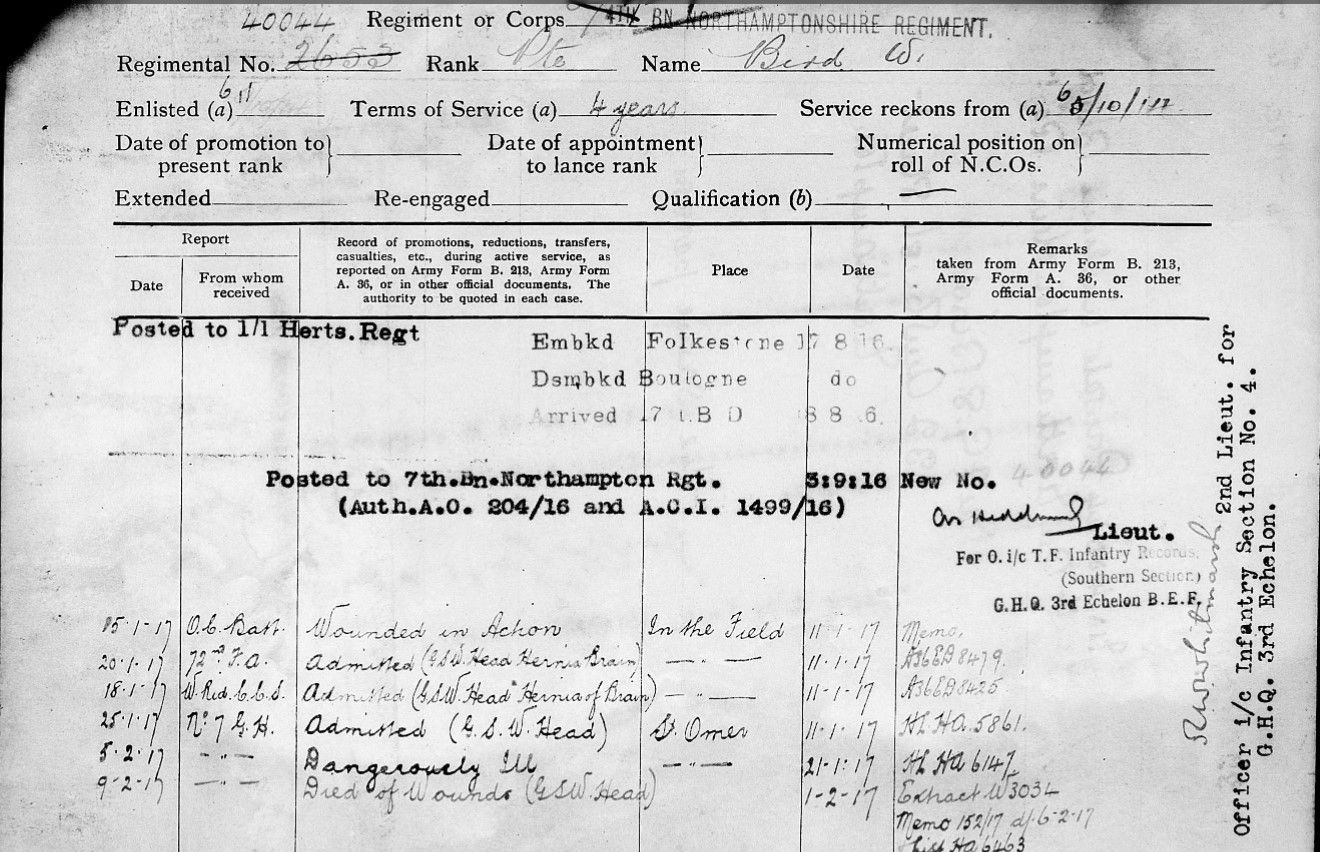 40044 Regiment or Corps 4TH BN NORTHAMPTONSHIRE REGIMENT.
Regimental No. 2653 Rank Pte Name Bird W.
Enlisted (a) Terms of Service (a) 4 years Service reckons from (a)
Date of promotion to present rank} Date of appointment to lance rank} Numerical position on roll of N.C.Os.}
Extended Re-engaged Qualification (b)
Report
Date
From whom received
Record of promotions, reductions, transfers,
casualties, etc., during active service, as
reported on Army Form B. 213, Army Form
A. 36, or in other official documents. The
authority to be quoted in each case.
Place
Date
Remarks
taken from Army Form B. 213,
Army Form A. 36, or other
official documents.
Posted to 1/1 Herts. Regt
Embkd Folkestone 17 8 16
Dsmbkd Boulogne do
Arrived 17 I.B D
Posted to 7th.Bn.Northampton Rgt. 3:9:16 New No. 40044
(Auth.A.O. 204/16 and A.C.I. 1499/16)
Lieut.
For O. i/c T.F. Infantry Records,
(Southern Section)
G.H.Q. 3rd Echelon B.E.F.
15-1-17 O.C. Batt. Wounded in Action In the Field 11-1-17 Memo.
20-1-17 72nd F.A. Admitted (GSW Head Hernia Brain) — " — 11-1-17 A36 ED 8479.
18-1-17 W Rid. C.C.S. Admitted (G.S.W. Head Hernia of Brain) — " — 11-1-17 A36 ED 8425
25-1-17 No 7 G.H. Admitted (G.S.W. Head) St. Omer 11-1-17 HL HA. 5861.
5-2-17 — " — Dangerously Ill — " — 21-1-17 HL HA 6147
9-2-17 — " — Died of Wounds (GSW. Head) 1-2-17 Extract W3034
Memo 152/17 d/ 6-2-17
List HA 6463
2nd Lieut. for
Officer i/c Infantry Section No. 4.
G.H.Q. 3rd Echelon.